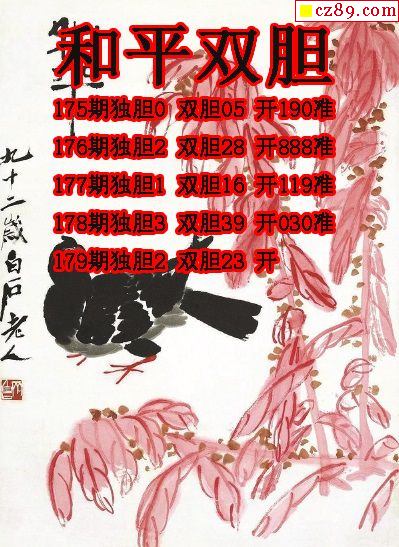 cz89.com
和平双胆
175期独胆0 双胆05 开190准
176期独胆2 双胆28 开888准
177期独胆1 双胆16 开119准
178期独胆3 双胆39 开030准
179期独胆2 双胆23 开
九十二歲白石老人